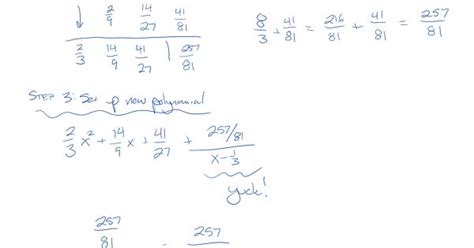 ↓ 2/9 14/27 41/81
2/3 14/9 41/27 | 257/81
8/3 + 41/81 = 216/81 + 41/81 = 257/81
STEP 3: Set up new polynomial
2/3 x² + 14/9 x + 41/27 + (257/81)/(x - 1/3)
yuck!
257/81 . 257